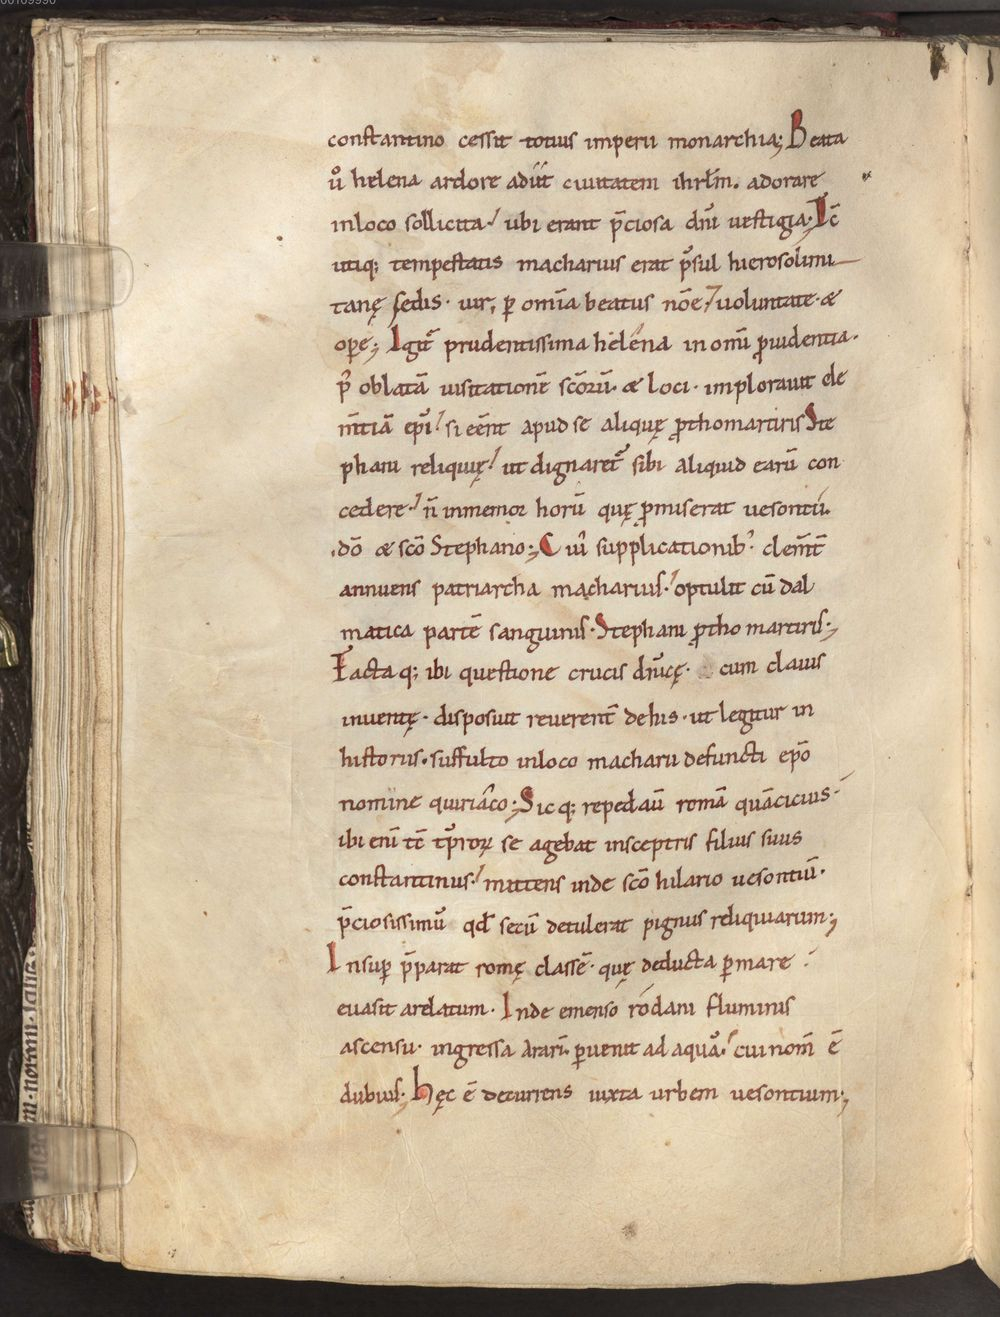 constantino cessit totius imperii monarchia; Beata
u͛o helena ardore adiit ciuitatem ihrl̄m. adorare
inloco sollicita ubi erant p̄ciosa dn̄i uestigia. Ic̄
utiq; tempestatis macharius erat p̄sul hierosolimi
tanę sedis. uir, ꝑ omīa beatus nōe, uoluntate. &
opere; Igit̄ prudentissima helena in omī ꝓuidentia.
p̄ oblatā uisitationē sc̄orū. & loci. implorauit cle
m̄tiā ep̄i si eēnt apud se aliquę ꝓthomartiris Ste
phani reliquię ut dignaret̄ sibi aliquid earū con
cedere. n̄ inmemor horū quę ꝓmiserat uesontii.
dō & sc̄o Stephano; Cui͛ supplicationib; clem̄t̄
annuens patriarcha macharius. optulit cū dal
matica partē sanguinis. Stephani ꝓtho martiris;
Facta q; ibi questione crucis dn̄icę. cum clauis
inuentę. disposuit reuerent̄ de his. ut legitur in
historiis. suffulto inloco macharii defuncti ep̄o
nomine quiriaco; Sic q; repedaū romā quācicius
ibi enī tc̄ tp̄roꝝ se agebat insceptris filius suus
constantinus. mittens inde sc̄o hilario uesontiū.
p̄ciosissimū qd̄ secū detulerat pignus reliquiarum;
Insuꝑ p̄parat romę classē. quę deducta ꝑ mare
euasit arelatum. Inde emenso rodani fluminis
ascensu. ingressa Ararī. ꝑuenit ad aquā. cui nom̄ ē
dubius; Hęc ē decurrens iuxta urbem uesontium;